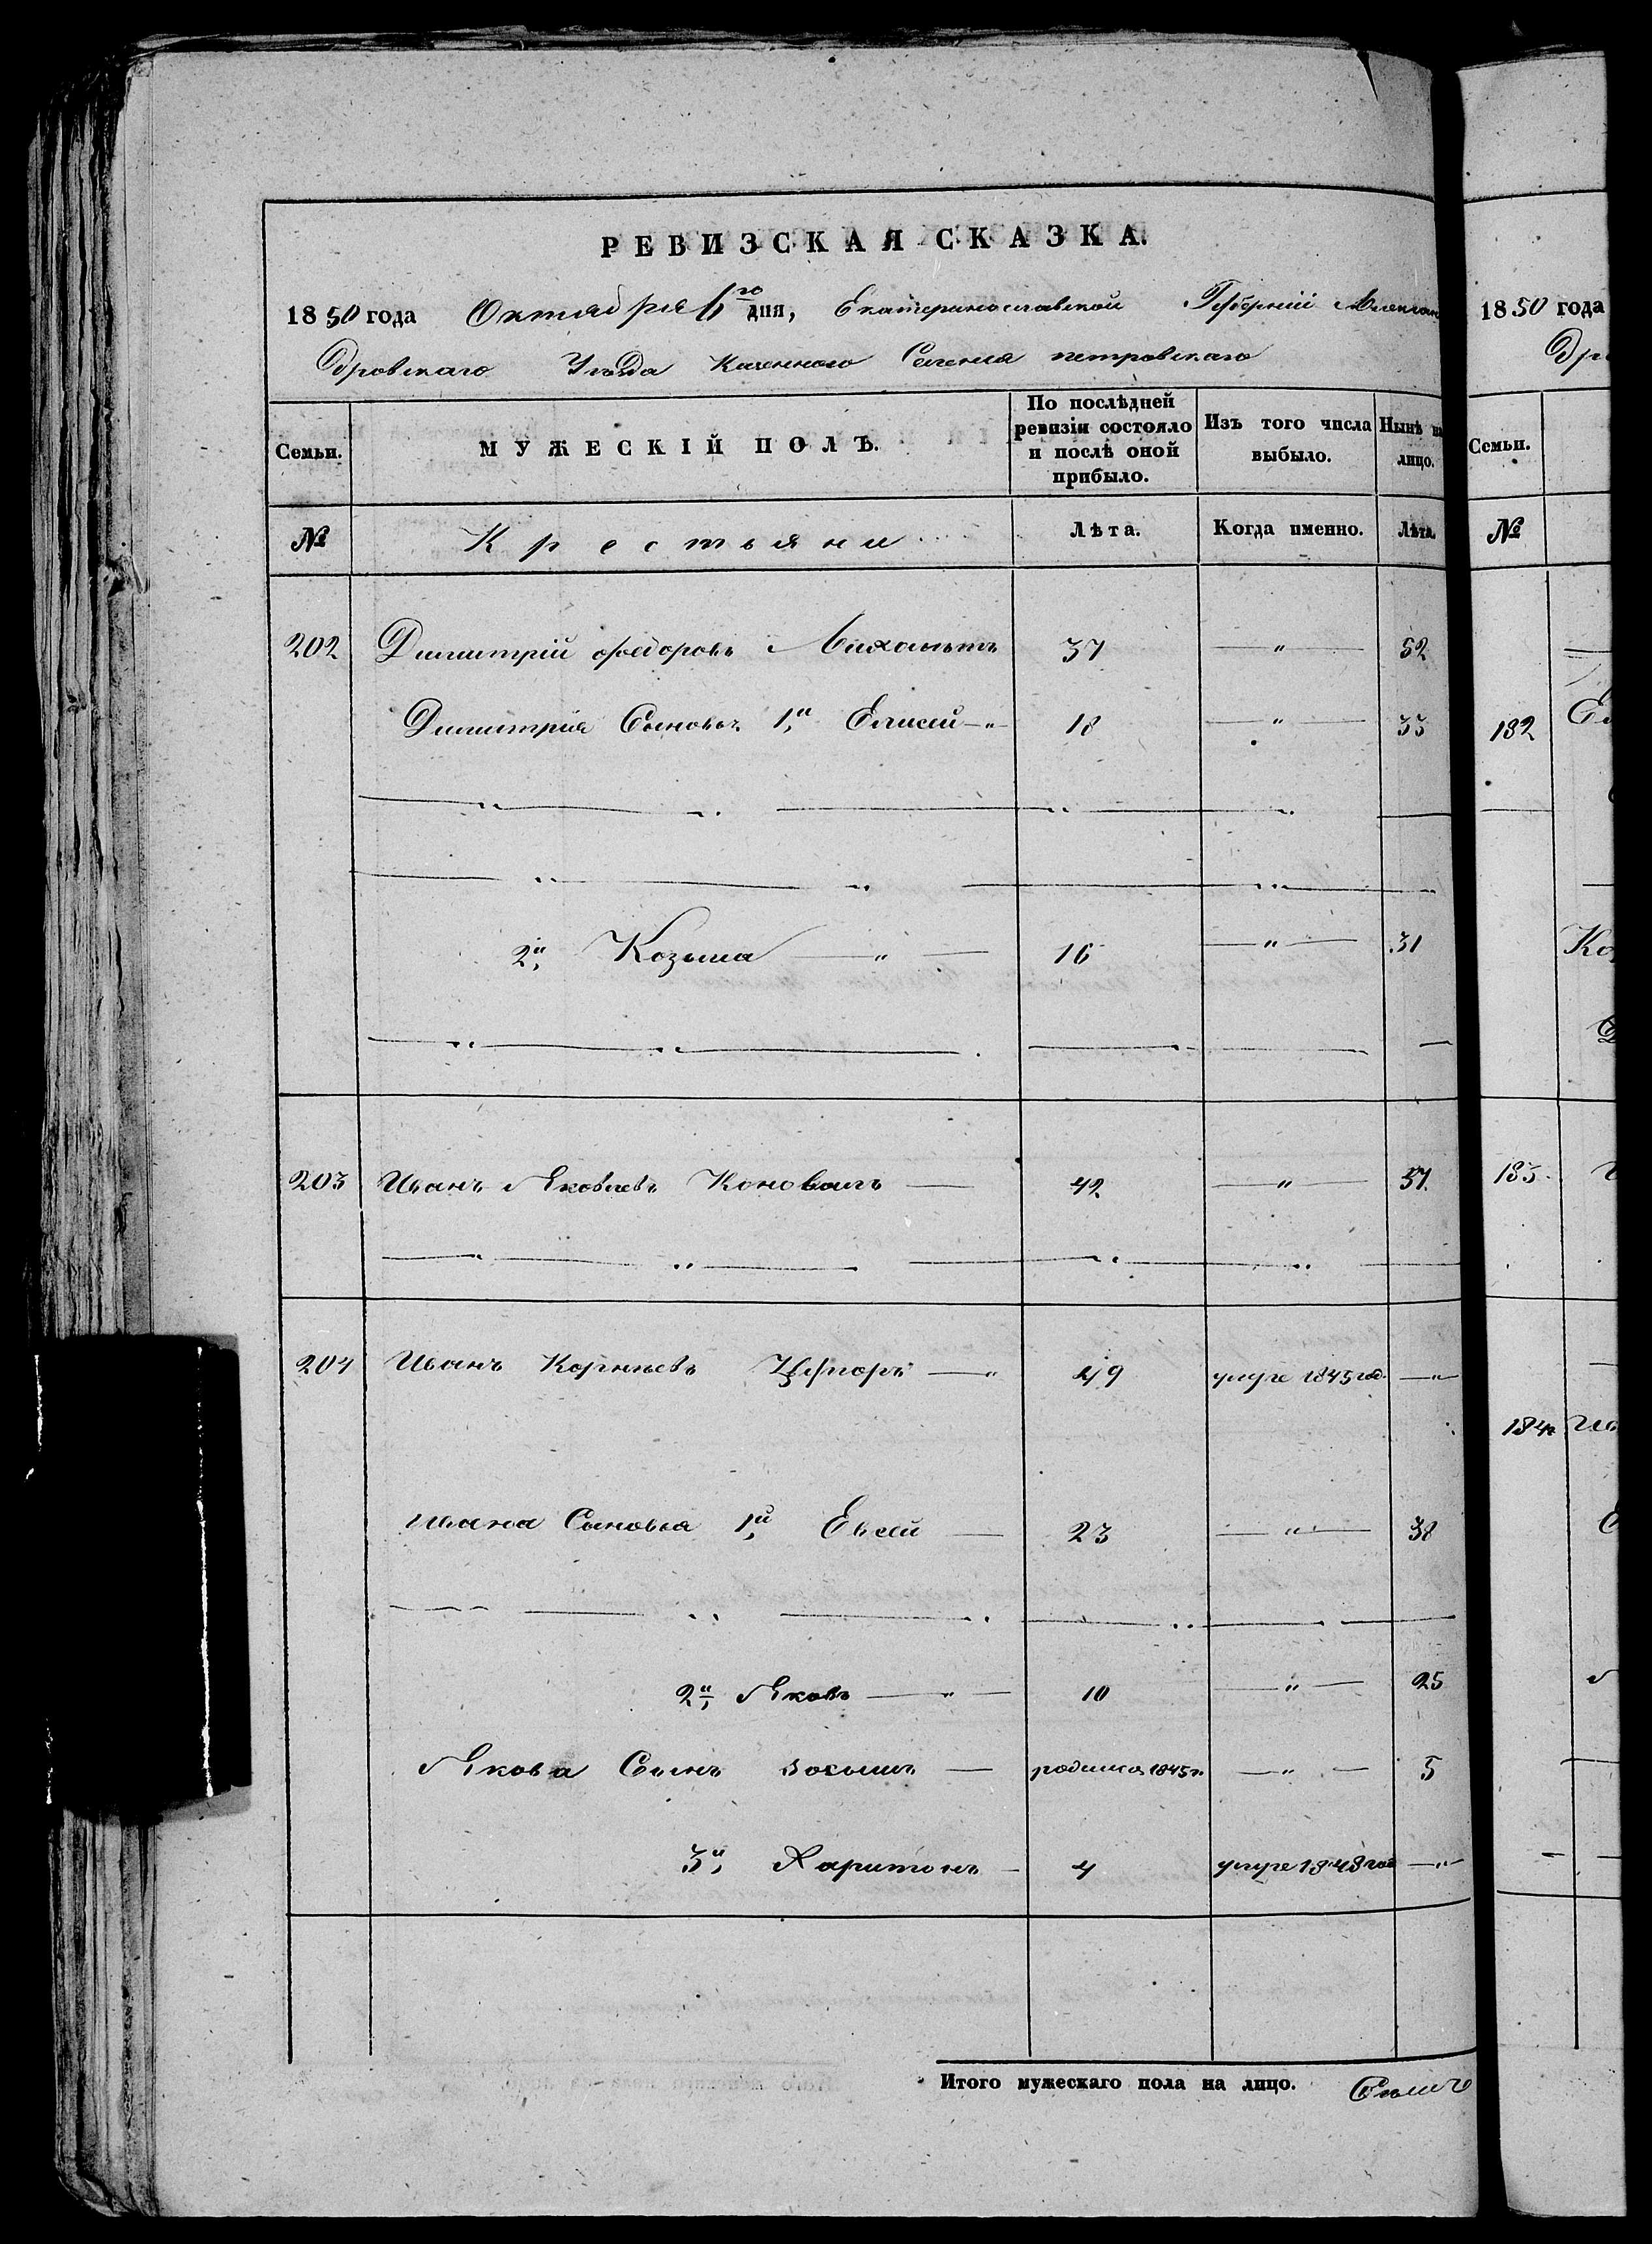 РЕВИЗСКАЯ СКАЗКА.
1850 года Октября 6го дня, Екатеринославской Губерніи Алексан
дровскаго Уѣзда Казенного Селенія петровскаго
Семьи. МУЖЕСКІЙ ПОЛЪ. По послѣдней ревизіи состояло и послѣ оной прибыло. Изъ того числа выбыло. Нынѣ на лицо.
№ Крестьяни Лѣта. Когда именно. Лѣта.
202 Димитрій федоровъ 37 — " — 52
Димитрія Сыновья 1й Елисей — " — 18 — " — 33
2й Козьма — " — 16 — " — 31
203 Иванъ Яковлевъ Коновалъ — 42 — " — 57.
204 Иванъ Корнѣевъ — " 49 умре 1845 год. — " —
Ивана Сыновья 1й Евсей — 23 — " — 38
2й Яковъ — " — 10 — " — 25
Якова Сынъ — 1845г. — " — 5
3й Харитонъ — 4 умре 1848 год — " —
Итого мужескаго пола на лицо. Семь
1850 года
Дро
Семьи.
№
182
Ко
183.
184 Ив